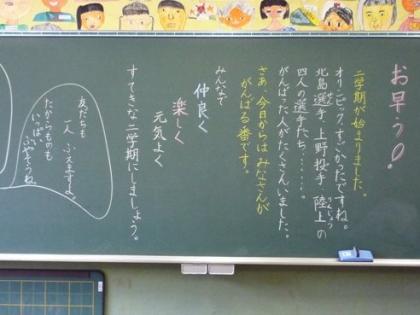 お早う!
二学期が始まりました。
オリンピック、すごかったですね。
北島選手、上野投手、陸上の
四人の選手たち・・・・・・
がんばった人がたくさんいました。
さあ、今日からは みなさんが
がんばる番です。
みんなで
仲良く
楽しく
元気よく
すてきな二学期にしましょう。
友だちも
一人 ふえますよ。
たからものも
いっぱい
ふやそうね。